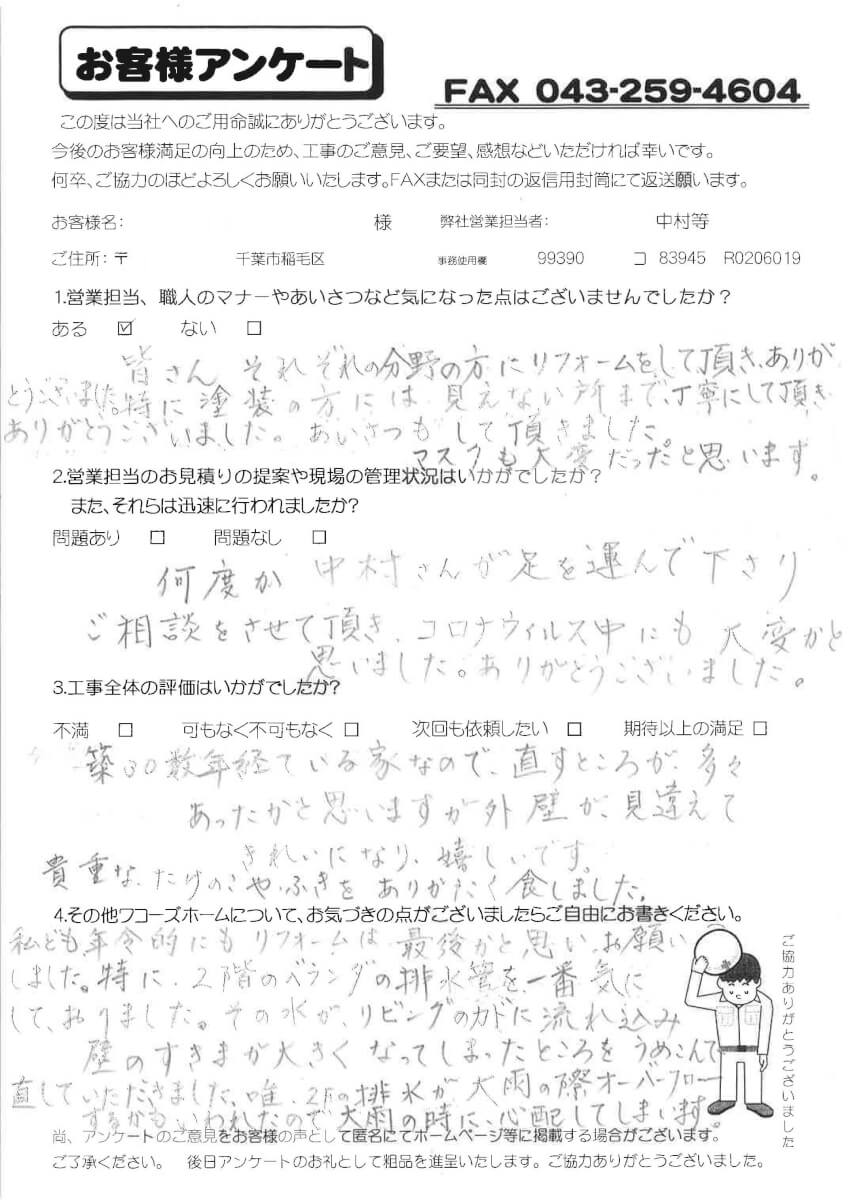 お客様アンケート
FAX 043-259-4604
この度は当社へのご用命誠にありがとうございます。
今後のお客様満足の向上のため、工事のご意見、ご要望、感想などいただければ幸いです。
何卒、ご協力のほどよろしくお願いいたします。FAXまたは同封の返信用封筒にて返送願います。
お客様名: 様 弊社営業担当者: 中村等
ご住所:〒 千葉市稲毛区 事務使用欄 99390 コ 83945 R0206019
1.営業担当、職人のマナーやあいさつなど気になった点はございませんでしたか?
ある ☑ ない □
皆さん それぞれの分野の方にリフォームをして頂き、ありが
とうございました。特に塗装の方には 見えない所まで、丁寧にして頂き
ありがとうございました。あいさつもして頂きました。
マスクも大変だったと思います。
2.営業担当のお見積りの提案や現場の管理状況はいかがでしたか?
また、それらは迅速に行われましたか?
問題あり □ 問題なし □
何度か 中村さんが足を運んで下さり
ご相談をさせて頂き、コロナウィルス中にも大変かと
思いました。ありがとうございました。
3.工事全体の評価はいかがでしたか?
不満 □ 可もなく不可もなく □ 次回も依頼したい □ 期待以上の満足 □
築30数年経ている家なので、直すところが、多々
あったかと思いますが外壁が、見違えて
きれいになり、嬉しいです。
貴重な、たけのこや、ふきを ありがたく食しました。
4.その他ワコーズホームについて、お気づきの点がございましたらご自由にお書きください。
私ども年令的にもリフォームは最後かと思い、お願い
しました。特に、2階のベランダの排水管を一番気に
して、おりました。その水が、リビングのカドに流れ込み
壁のすきまが大きくなってしまったところをうめこんで
直していただきました、唯、2Fの排水が大雨の際オーバーフロー
するかもいわれたので大雨の時に心配してしまいます。
ご協力ありがとうございました
尚、アンケートのご意見をお客様の声として匿名にてホームページ等に掲載する場合がございます。
ご了承ください。 後日アンケートのお礼として粗品を進呈いたします。ご協力ありがとうございました。